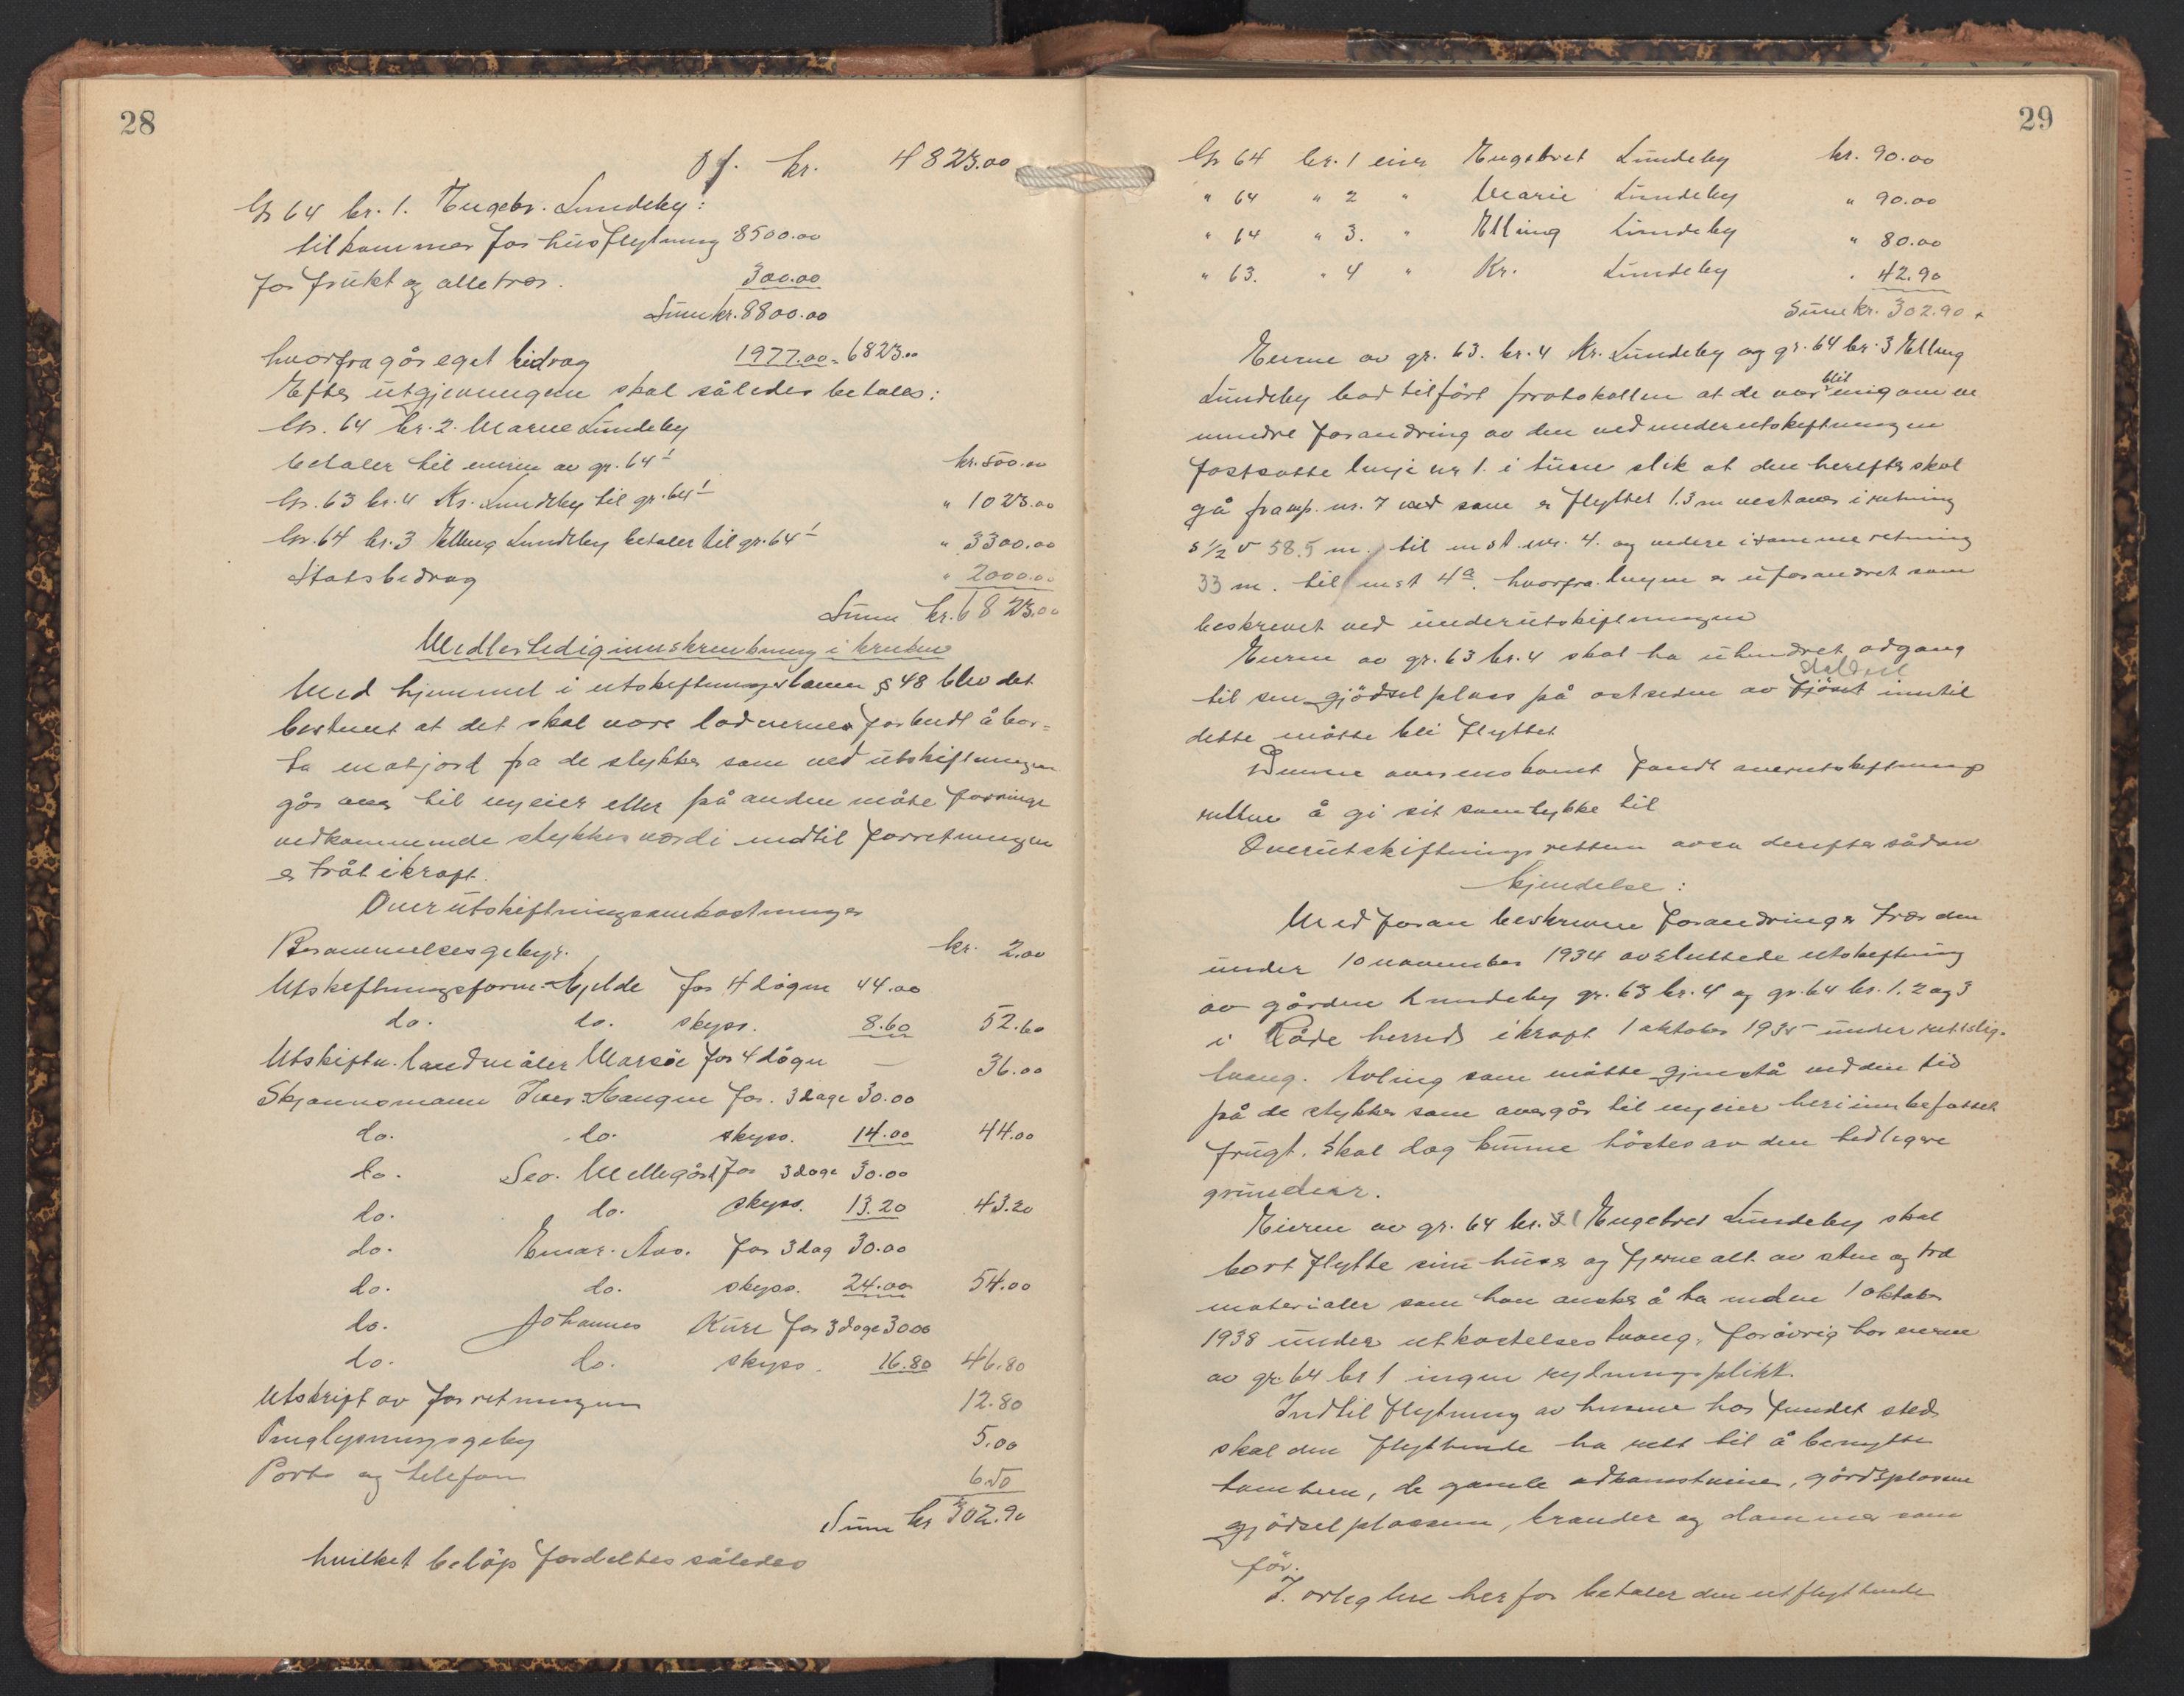 28
Of. kr. 4823.00
Gr 64 br. 1. Engebr. Lundeby:
tilkommer for husflytning 8500.00
for frukt og alletrær. 300.00
Sum kr. 8800.00
hvorfra går eget bidrag 1977.00 = 6823.00
Efter utgjevningene skal således betales:
Gr. 64 br. 2. Marie Lundeby
betaler til eieren av gr. 64/1 kr. 500.00
Gr. 63 br. 4 Kr. Lundeby til gr. 64/1 " 1023.00
Gr. 64 br. 3 Elling Lundeby betaler til gr. 64/1 " 3300.00
Statsbidrag " 2000.00
Sum kr. 6823.00
Midlertidig innskrenkning i bruken
Med hjemmel i utskiftningsloven § 48 blev det
bestemt at det skal være lodeierne forbudt å bor-
ta matjord fra de stykker som ved utskiftningen
går over til ny eier eller på anden måte forringe
vedkommende stykkes værdi indtil forretningen
er tråt i kraft.
Overutskiftningsomkostninger
Berammelsesgebyr. kr. 2.00
Utskiftningsform. Gjelde for 4 dögn 44.00
do. do. skyss. 8.60 52.60
Utskiftn. landmåler for 4 dögn — 36.00
Skjønnsmann Iver Haugen for 3 dage 30.00
do. do. skyss. 14.00 44.00
do. Sev. Mellegård for 3 dage 30.00
do. do. skyss. 13.20 43.20
do. Einar Aas. for 3 dag 30.00
do. do. skyss. 24.00 54.00
do. Johannes Kure for 3 dage 30.00
do. do. skyss. 16.80 46.80
Utskrift av forretningen 12.80
Tinglysningsgeby 5.00
Porto og telefon 6.50
Sum kr 302.90
hvilket beløp fordeltes således
29
Gr 64 br. 1 eier Engebret Lundeby kr. 90.00
" 64 " 2 " Marie Lundeby " 90.00
" 64 " 3. " Elling Lundeby " 80.00
" 63. " 4 " Kr. Lundeby " 42.90
Sum kr. 302.90
Eierne av gr. 63. br. 4 Kr. Lundeby og gr. 64 br. 3 Elling
Lundeby bad tilført protokollen at de var blit enig om en
mindre forandring av den ved underutskiftningen
fastsatte linje nr 1. i tunet slik at den herefter skal
gå fra mp. nr. 7 ved som er flyttet 1.3 m vestover i retning
s 1/2 v 58.5 m. til mst. nr. 4. og videre i samme retning
33 m. til mst 4a. hvorfra linjen er uforandret som
beskrevet ved underutskiftningen
Eieren av gr. 63 br. 4 skal ha uhindret adgang
til sin gjødselplass på østsiden av fjøset inntil
dette måtte bli flyttet
Denne overenskomst fandt overutskiftnings
retten å gi sit samtykke til
Overutskiftningsretten avsa derefter sådan
kjendelse:
Med foran beskrevne forandringer trær den
under 10 november 1934 avsluttede utskiftning
av gården Lundeby gr. 63 br. 4 og gr. 64 br. 1. 2 og 3
i Råde herred i kraft 1 oktober 1935 under rettslig.
tvang. Avling som måtte gjenstå ved den tid
på de stykker som overgår til ny eier heri innbefattet
frugt. skal dog kunne høstes av den tidligere
grundeier.
Eieren av gr. 64 br. 1 Engebret Lundeby skal
bort flytte sine huser og fjerne alt av sten og træ
materialer som han ønsker å ta inden 1 oktober
1938 under utkastelses tvang. forøvrig har eieren
av gr. 64 br 1 ingen rydningsplikt.
Indtil flytning av husene har fundet sted
skal den flyttende ha rett til å benytte
tomtene, de gamle adkomstveier, gårdsplassen
gjødselplassen, brønder og dammer som
før.
I vederlag herfor betaler den utflyttende